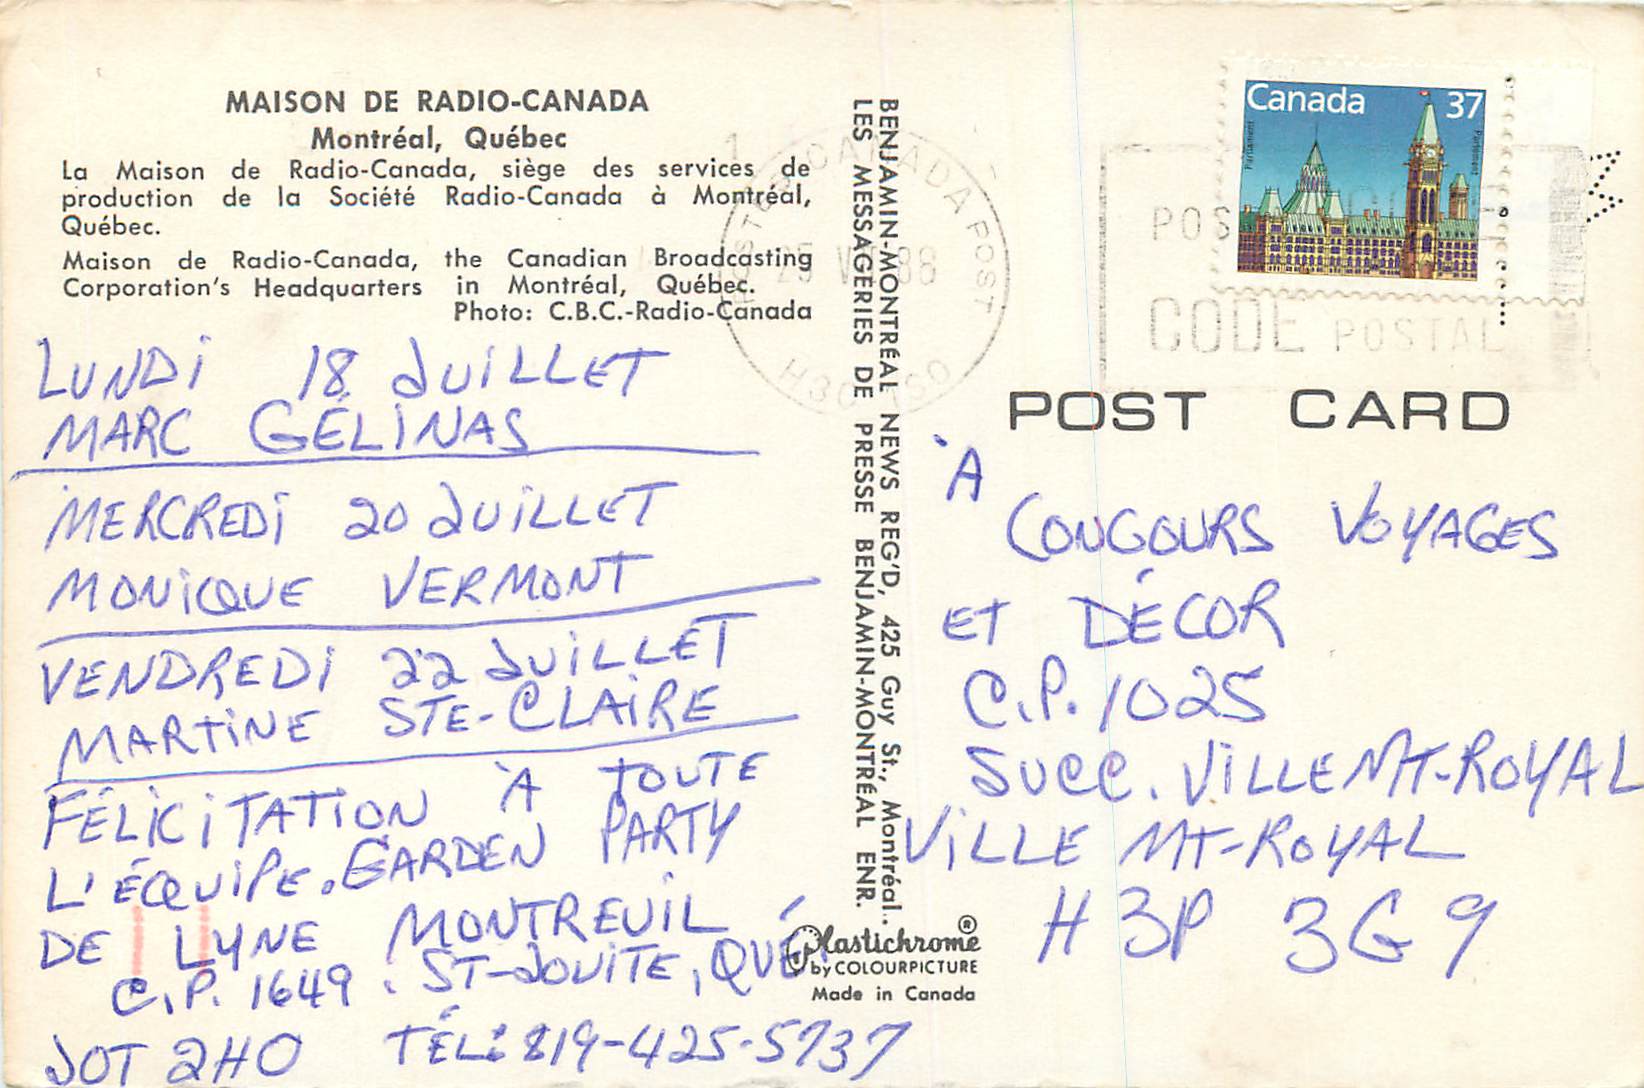 MAISON DE RADIO-CANADA
Montréal, Québec
La Maison de Radio-Canada, siège des services de
production de la Société Radio-Canada à Montréal,
Québec.
Maison de Radio-Canada, the Canadian Broadcasting
Corporation's Headquarters in Montréal, Québec.
Photo: C.B.C.-Radio-Canada
LUNDI 18 JUILLET
MARC GÉLINAS
MERCREDI 20 JUILLET
MONICQUE VERMONT
VENDREDI 22 JUILLET
MARTINE STE-CLAIRE
FÉLICITATION À TOUTE
L'ÉCQUIPE. GARDEN PARTY
DE LYNE MONTREUIL
C.P. 1649. ST-JOUITE, QUÉ
JOT 2HO TÉL: 819-425-5737
BENJAMIN-MONTRÉAL NEWS REG'D, 425 Guy St., Montréal.
LES MESSAGERIES DE PRESSE BENJAMIN-MONTRÉAL ENR.
Plastichrome ®
by COLOURPICTURE
Made in Canada
Canada 37
Parlement
Parliament
CANADA POST
25 VII 88
H3C
CODE POSTAL
POST CARD
À
CONCOURS VOYAGES
ET DÉCOR
C.P. 1025
SUCC. VILLE MT-ROYAL
VILLE MT-ROYAL
H3P 3G9